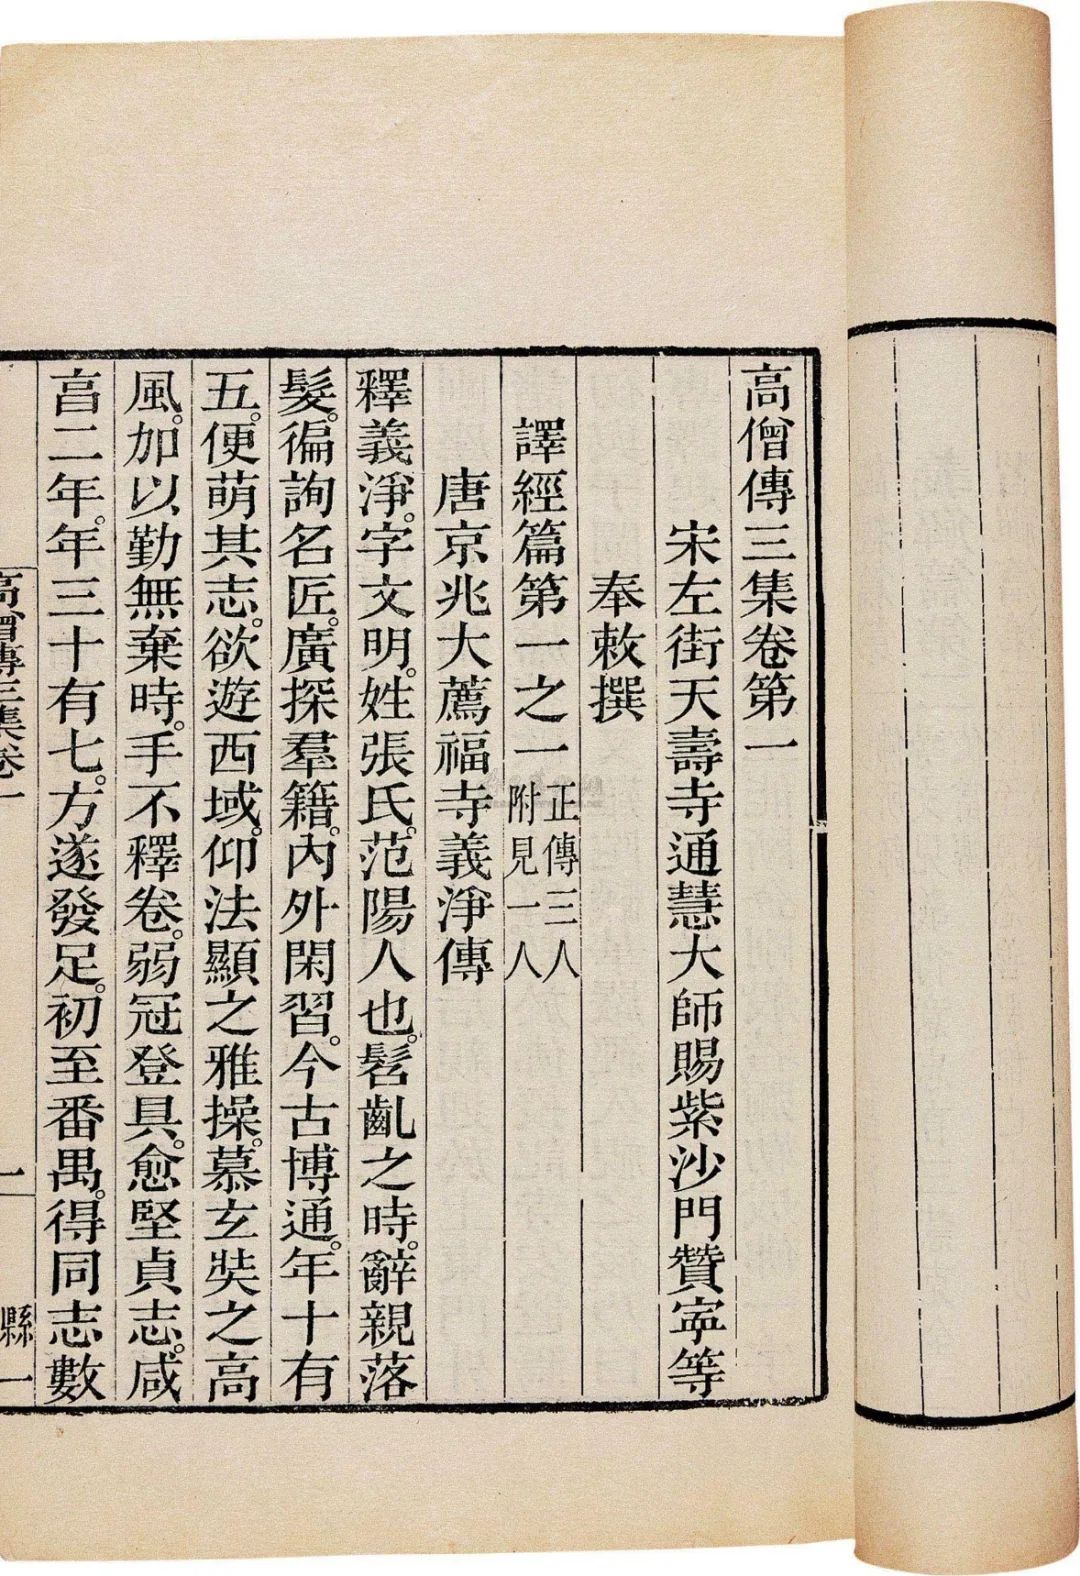 高僧傳三集卷第一
宋左街天壽寺通慧大師賜紫沙門贊寧等
奉敕撰
譯經篇第一之一
正傳三人
附見一人
唐京兆大薦福寺義淨傳
釋義淨。字文明。姓張氏。范陽人也。髫齓之時。辭親落
髮。徧詢名匠。廣探羣籍。內外閑習。今古博通。年十有
五。便萌其志。欲遊西域。仰法顯之雅操。慕玄奘之高
風。加以勤無棄時。手不釋卷。弱冠登具。愈堅貞志。咸
亯二年。年三十有七。方遂發足。初至番禺。得同志數
高僧傳三集卷一
一
縣一